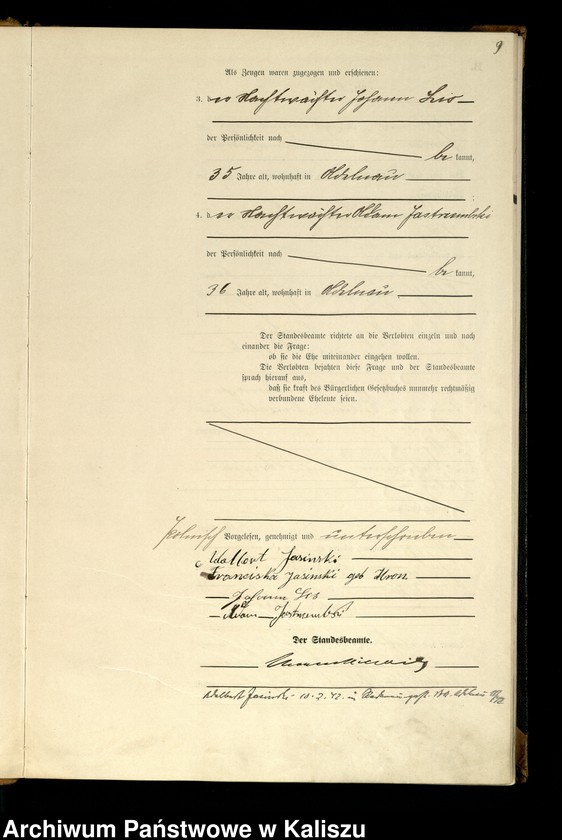 9
Als Zeugen waren zugezogen und erschienen:
3. der Nachtwächter Johann Lis
der Persönlichkeit nach
be kannt,
35 Jahre alt, wohnhaft in Adelnau
4. der Nachtwächter Adam Jastrzembski
der Persönlichkeit nach
be kannt,
36 Jahre alt, wohnhaft in Adelnau
Der Standesbeamte richtete an die Verlobten einzeln und nach
einander die Frage:
ob sie die Ehe miteinander eingehen wollen.
Die Verlobten bejahten diese Frage und der Standesbeamte
sprach hierauf aus,
daß sie kraft des Bürgerlichen Gesetzbuches nunmehr rechtmäßig
verbundene Eheleute seien.
polnisch Vorgelesen, genehmigt und unterschrieben
Adalbert Jasinski
Franciska Jasinski geb Hron
Johann Lis
Adam Jastrzembski
Der Standesbeamte.
Adalbert Jasinski 10.2.42. in gest.
Archiwum Państwowe w Kaliszu